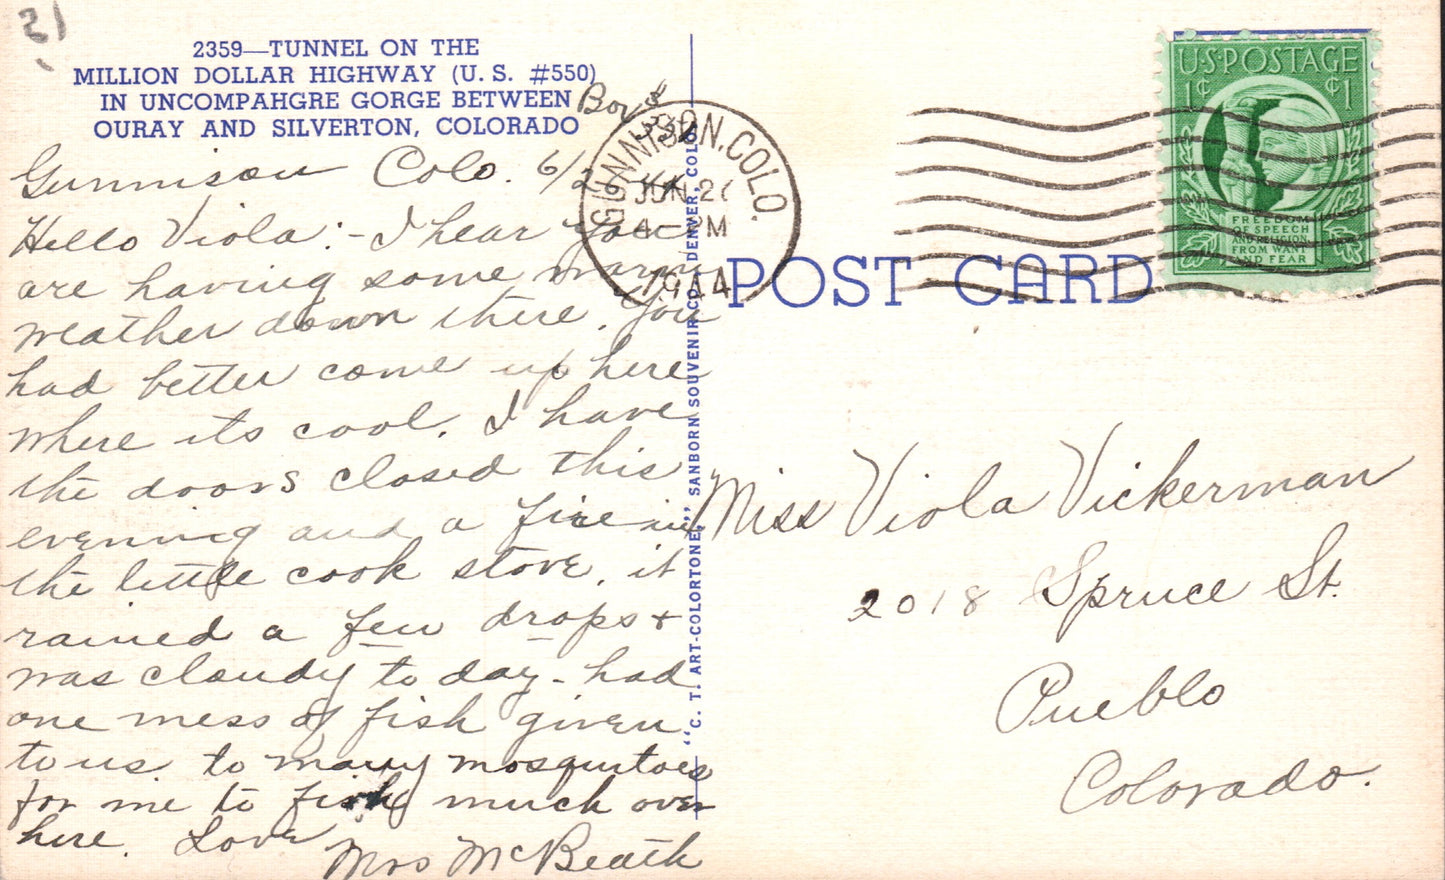 21
2359—TUNNEL ON THE
MILLION DOLLAR HIGHWAY (U. S. #550)
IN UNCOMPAHGRE GORGE BETWEEN
OURAY AND SILVERTON, COLORADO
Box
Gunnison Colo. 6/2
Hello Viola:- I hear you
are having some warm
weather down there. You
had better come up here
where its cool. I have
the doors closed this
evening and a fire in
the little cook stove, it
rained a few drops +
was cloudy to day - had
one mess of fish given
to us to many mosquitoes
for me to fish much over
here. Love
Mrs McBeath
GUNNISON, COLO.
JUN 2
4- PM
1944
"C. T. ART-COLORTONE," SANBORN SOUVENIR CO., DENVER, COLO.
POST CARD
U·S·POSTAGE
1¢ ¢1
FREEDOM
OF SPEECH
AND RELIGION,
FROM WANT
AND FEAR
Miss Viola Vickerman
2018 Spruce St.
Pueblo
Colorado.